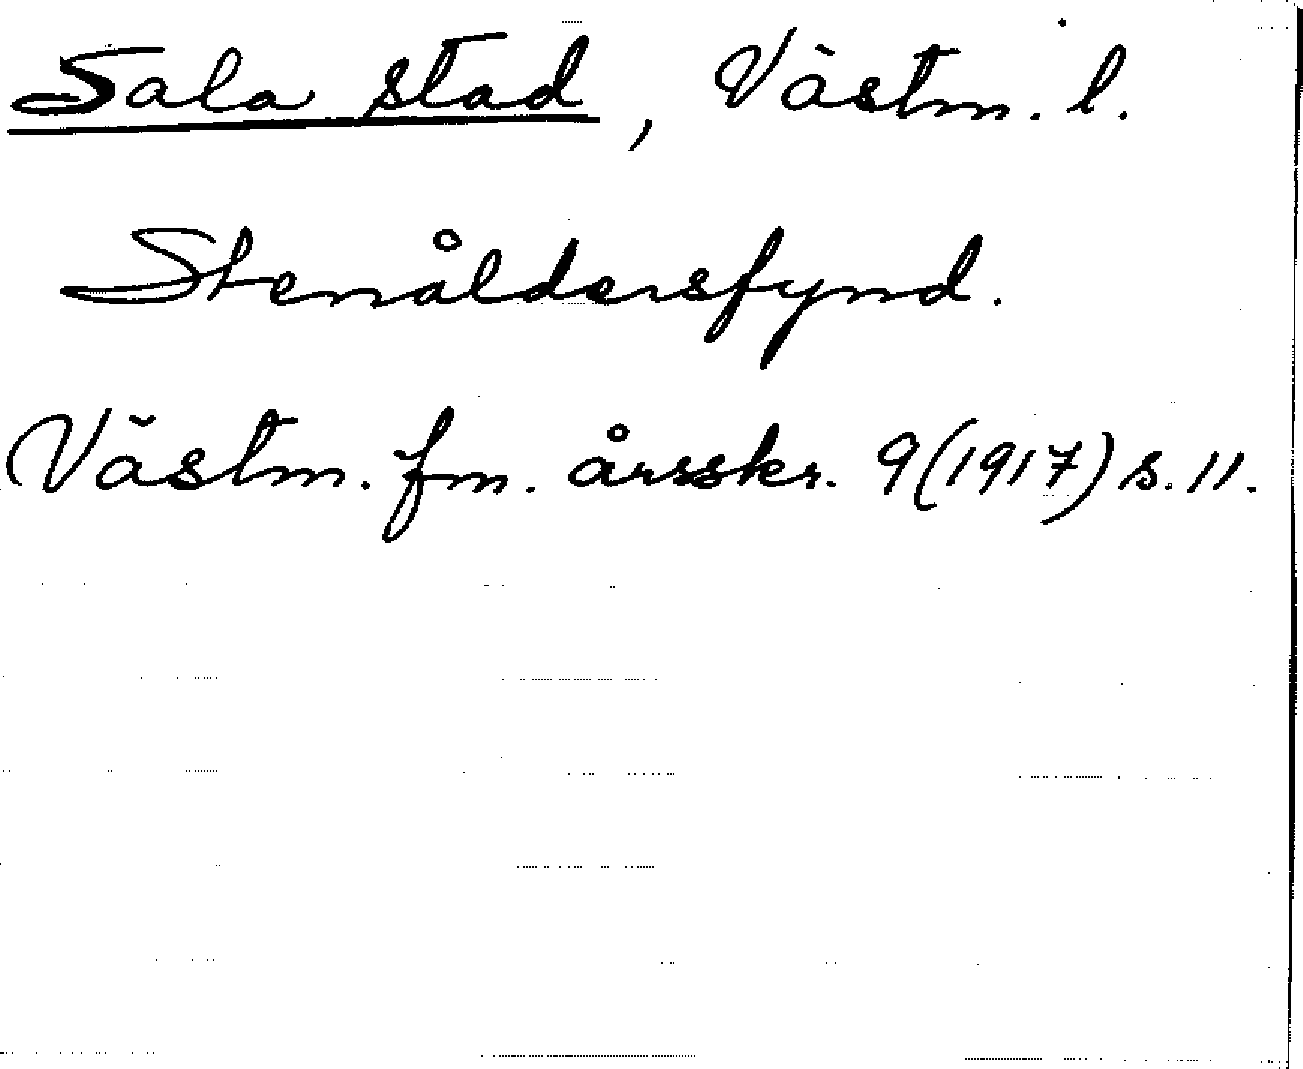 Sala stad, Västm. l.
Stenåldersfynd.
Västm. fm. årsskr. 9(1917) s. 11.